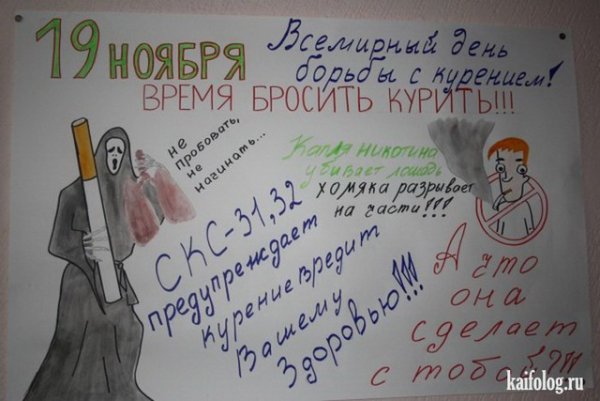 19 НОЯБРЯ
Всемирный день
борьбы с курением!
ВРЕМЯ БРОСИТЬ КУРИТЬ!!!
не
пробовать,
не
начинать...
Капля никотина
убивает лошадь
хомяка разрывает
на части!!!
СКС-31,32
предупреждает
курение вредит
Вашему
Здоровью!!!
А что
она
сделает
с тобой?!!
kaifolog.ru